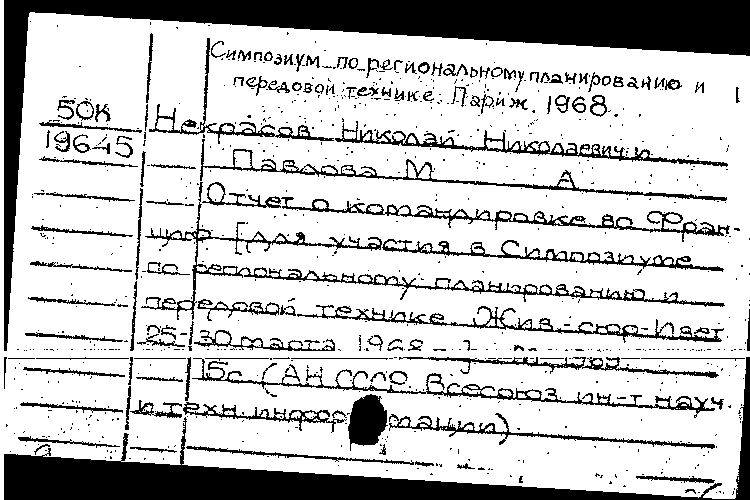 Симпозиум по региональному планированию и 1
передовой технике. Париж. 1968.
50К
19645
Некрасов Николай Николаевич и
Павлова М А
Отчет о командировке во Фран-
цию [для участия в Симпозиуме
по региональному планированию и
передовой технике. Жив-сюр-Ивет
25-30 марта 1968-] М., 1969.
15с (АН СССР. Всесоюз ин-т науч
и техн информации)